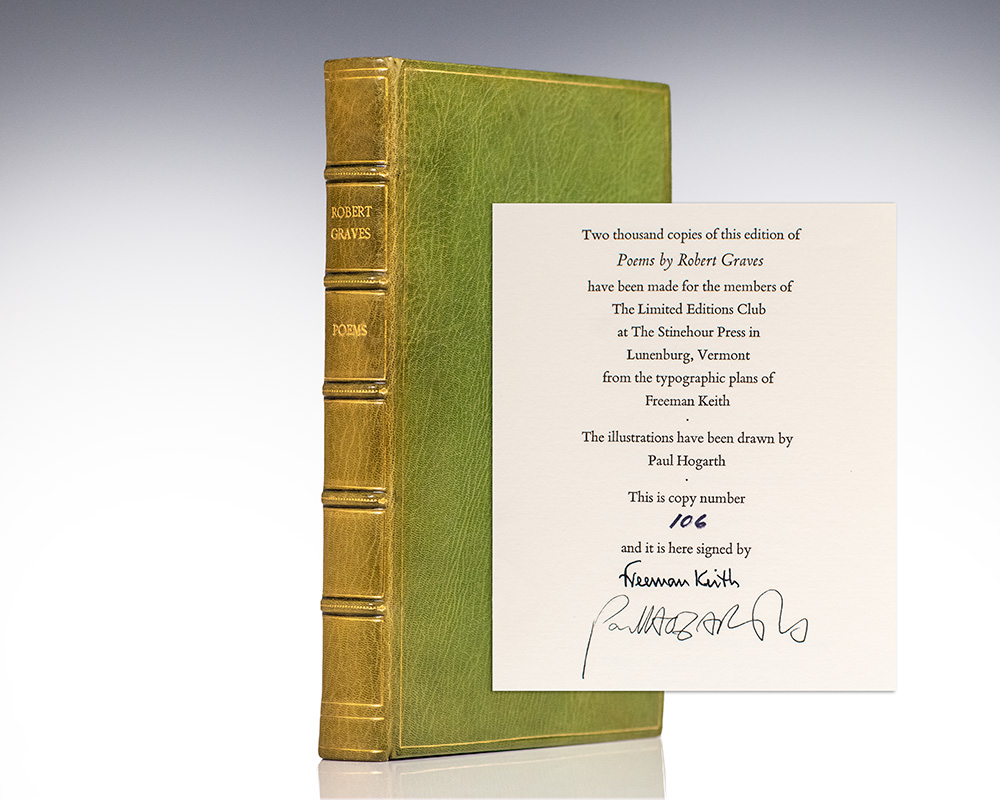 ROBERT
GRAVES
POEMS
Two thousand copies of this edition of
Poems by Robert Graves
have been made for the members of
The Limited Editions Club
at The Stinehour Press in
Lunenburg, Vermont
from the typographic plans of
Freeman Keith
·
The illustrations have been drawn by
Paul Hogarth
·
This is copy number
106
and it is here signed by
Freeman Keith
Paul HOGARTH